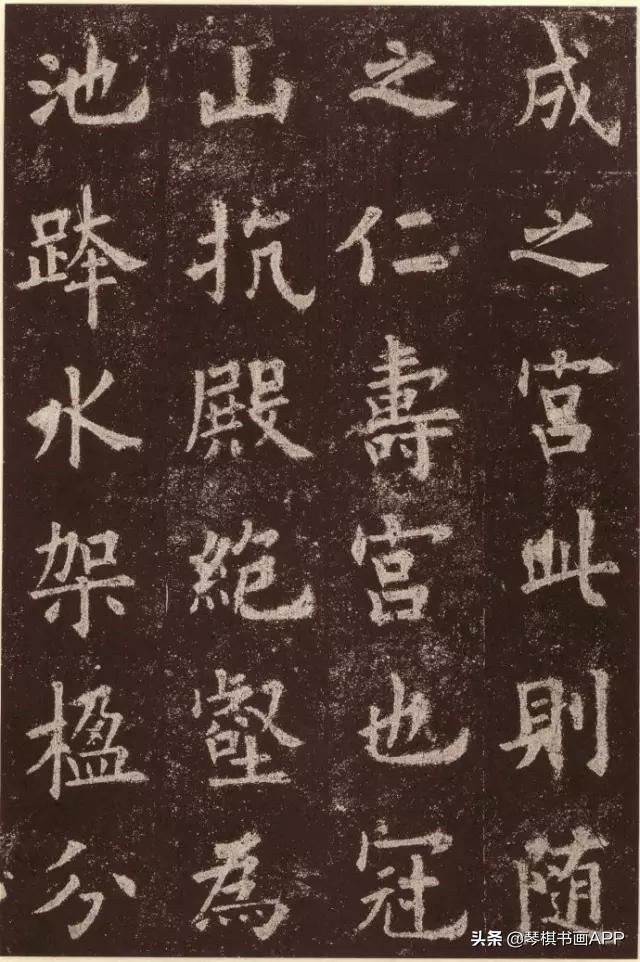 成之宮此則随
之仁壽宮也冠
山抗殿絶壑為
池跨水架楹分
头条@琴棋书画APP